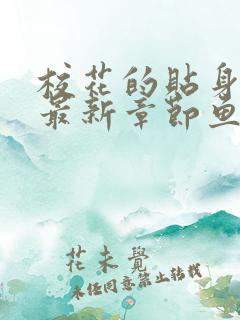 校花的貼身
最新章節魚
花未覺
未经同意禁止转载